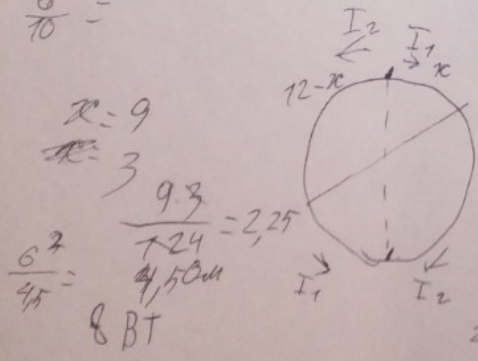 10 =
I₂
I₁
12-x
x
x = 9
3
9·3
= 2,25
6²
4,5 =
4,5 Ом
8 Вт
I₁
I₂